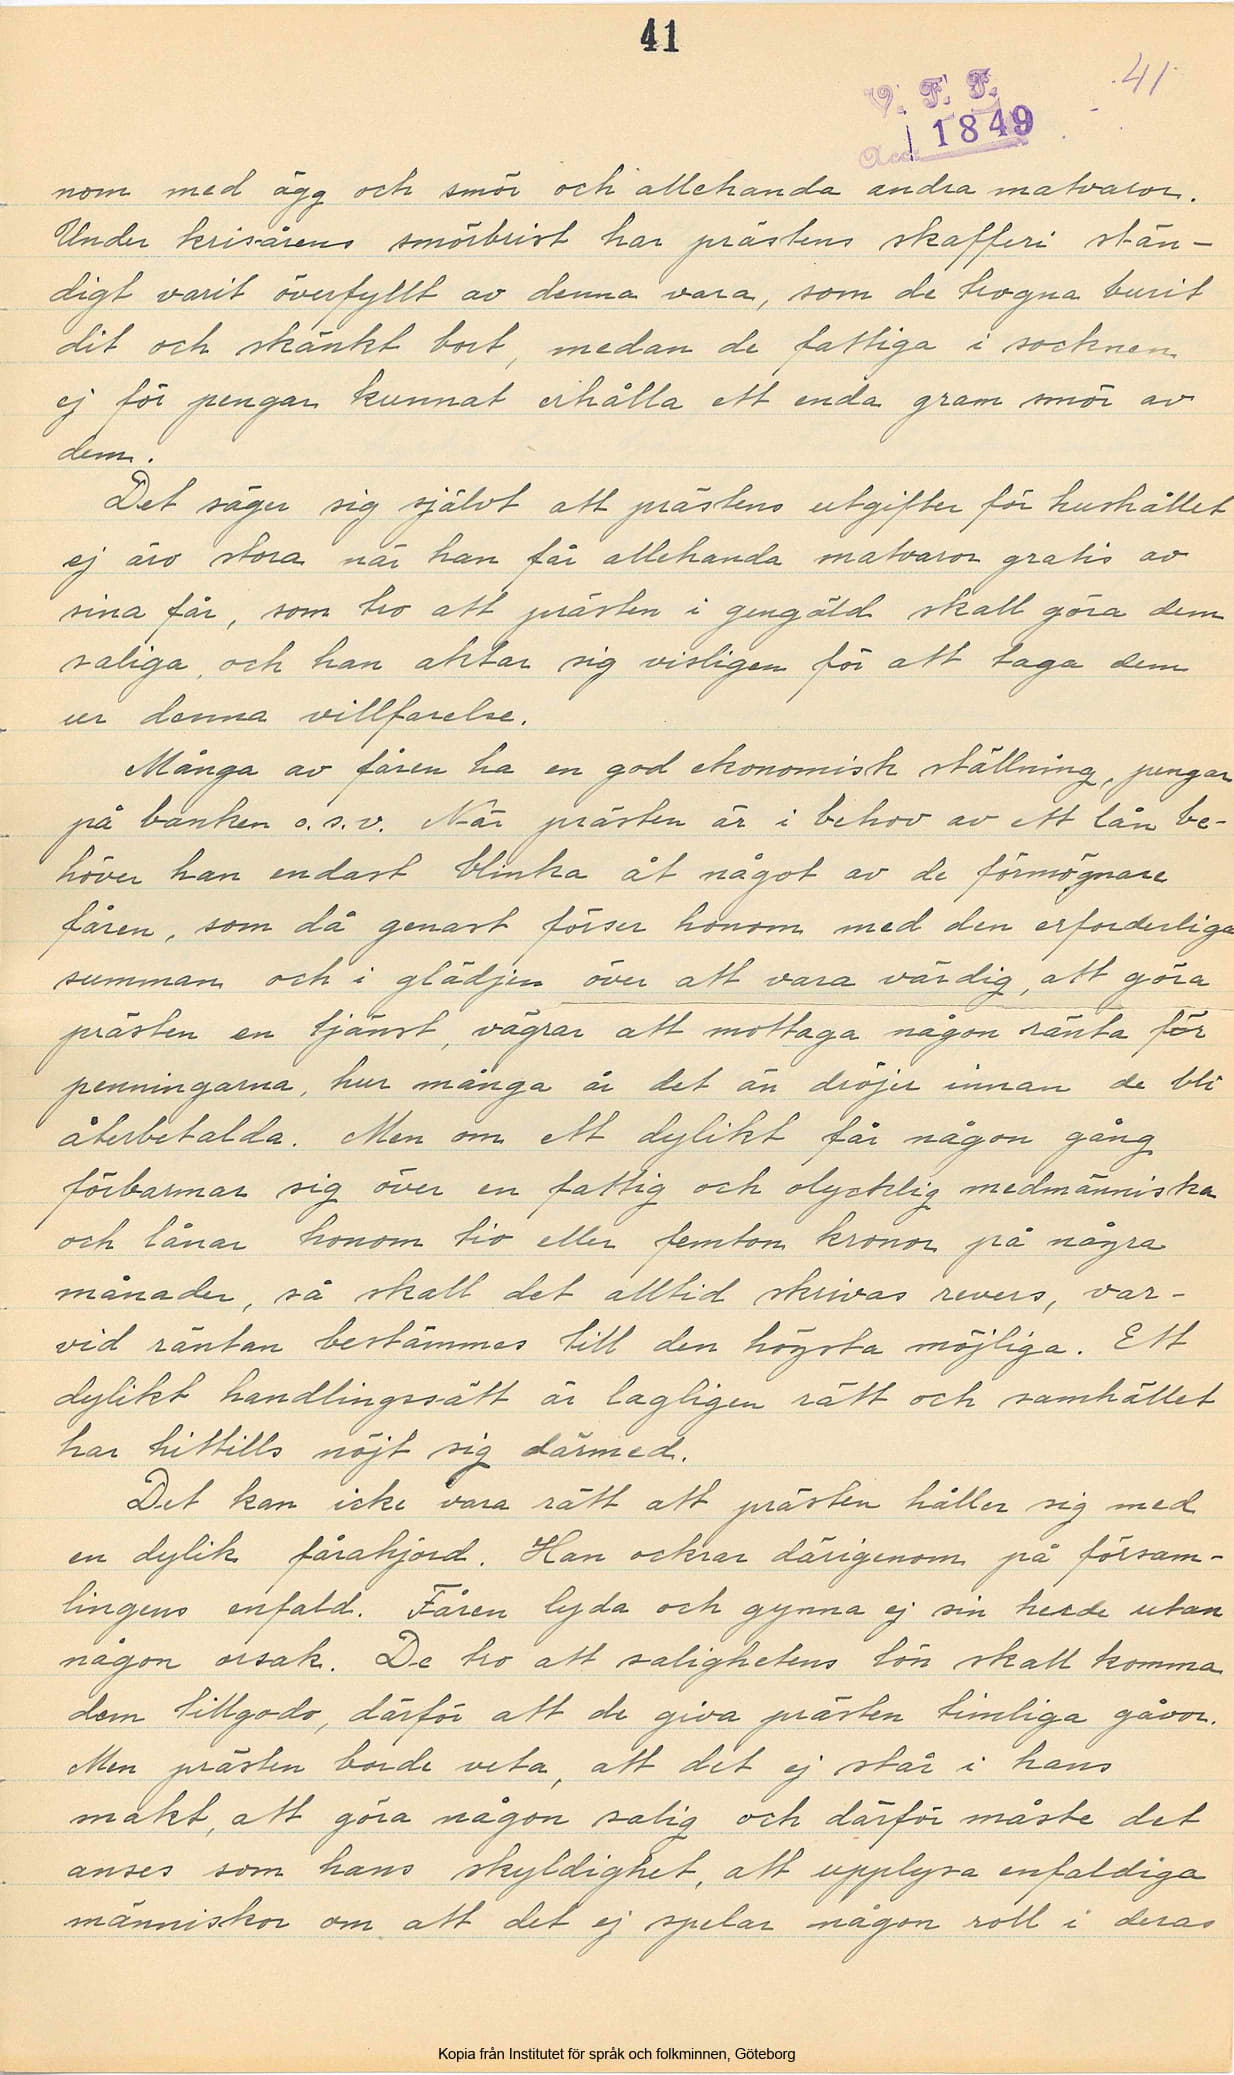 41
41
V. F. F.
Acc. 1849
nom med ägg och smör och allehanda andra matvaror.
Under krisårens smörbrist har prästens skafferi stän-
digt varit överfyllt av denna vara, som de trogna burit
dit och skänkt bort, medan de fattiga i socknen
ej för pengar kunnat erhålla ett enda gram smör av
dem.
Det säger sig självt att prästens utgifter för hushållet
ej äro stora när han får allehanda matvaror gratis av
sina får, som tro att prästen i gengäld skall göra dem
saliga, och han aktar sig visligen för att taga dem
ur denna villfarelse.
Många av fåren ha en god ekonomisk ställning, pengar
på banken o.s.v. När prästen är i behov av ett lån be-
höver han endast blinka åt något av de förmögnare
fåren, som då genast förser honom med den erforderliga
summan och i glädjen över att vara värdig, att göra
prästen en tjänst, vägrar att mottaga någon ränta för
penningarna, hur många år det än dröjer innan de bli
återbetalda. Men om ett dylikt får någon gång
förbarmar sig över en fattig och olycklig medmänniska
och lånar honom tio eller femton kronor på några
månader, så skall det alltid skrivas revers, var-
vid räntan bestämmes till den högsta möjliga. Ett
dylikt handlingssätt är lagligen rätt och samhället
har hittills nöjt sig därmed.
Det kan icke vara rätt att prästen håller sig med
en dylik fårahjord. Han ockrar därigenom på försam-
lingens enfald. Fåren lyda och gynna ej sin herde utan
någon orsak. De tro att salighetens lön skall komma
dem tillgodo, därför att de giva prästen timliga gåvor.
Men prästen borde veta, att det ej står i hans
makt, att göra någon salig och därför måste det
anses som hans skyldighet, att upplysa enfaldiga
människor om att det ej spelar någon roll i deras
Kopia från Institutet för språk och folkminnen, Göteborg